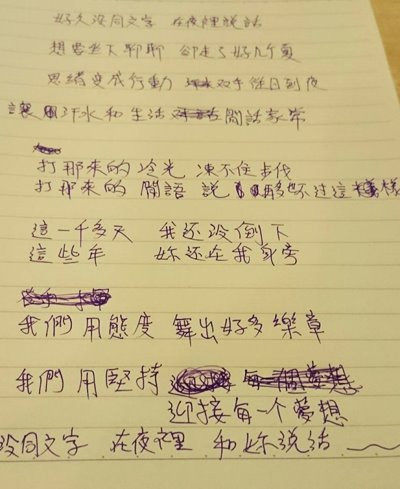 好久没同文字 在夜裡説話
想要坐下聊聊 卻走了好几个夏
思緒变成行動 双手從日到夜
讓 汗水和生活 閒話家常
打那來的冷光 凍不住步伐
打那來的閒語 説 够 不过這 樣
這一千多天 我还沒倒下
這些年 妳还在我身旁
我們用態度 舞出好多樂章
我們用堅持 每一個夢想
迎接每一个夢想
没同文字 在夜裡 和妳说话